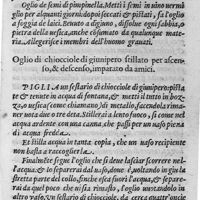 Oglio de semi di pimpinella. Metti i semi in vino vermi
glio per alquanti giorni: dopoi seccati & pistati, fa l'oglio
a foggia de laici. Benuto a digiuno, dissolue ogni sabbia, o
pietra della uesica, anche cosumato da qualunque mate-
ria. allegerisce i membri dell'huomo grauati.
Oglio di chiocciole di giunipero stillato per ascen-
so, & descenso, imparato da amici.
PIGLIA un sestario di chiocciole di giunipero: pista
te & tenute in acqua di fontana, & metti il tutto in bozzo,
o uesica (come chiamano) di metallo, facendola rimaner
uota due, o tre dita. Stillerai a lento fuoco, se come nel-
l'acqua ardente con una canna, che passi per uaso pieno
di acqua fredda.
Et stilla acqua in tanta copia, che nel uaso restante
ne resti poco.
Finalmẽte segue l'oglio che si deue lasciar scorrere nel-
l'acqua, & lo separarai dal uaso, done è, uoltando in giù la
stretta parte del collo, finche sia fuori l'acqua, & separa-
rai quel poco che ui sia rimasto, l'oglio mutandolo in
altro uaso. Un sestario di chiocciole, da cerca quattr'oncie